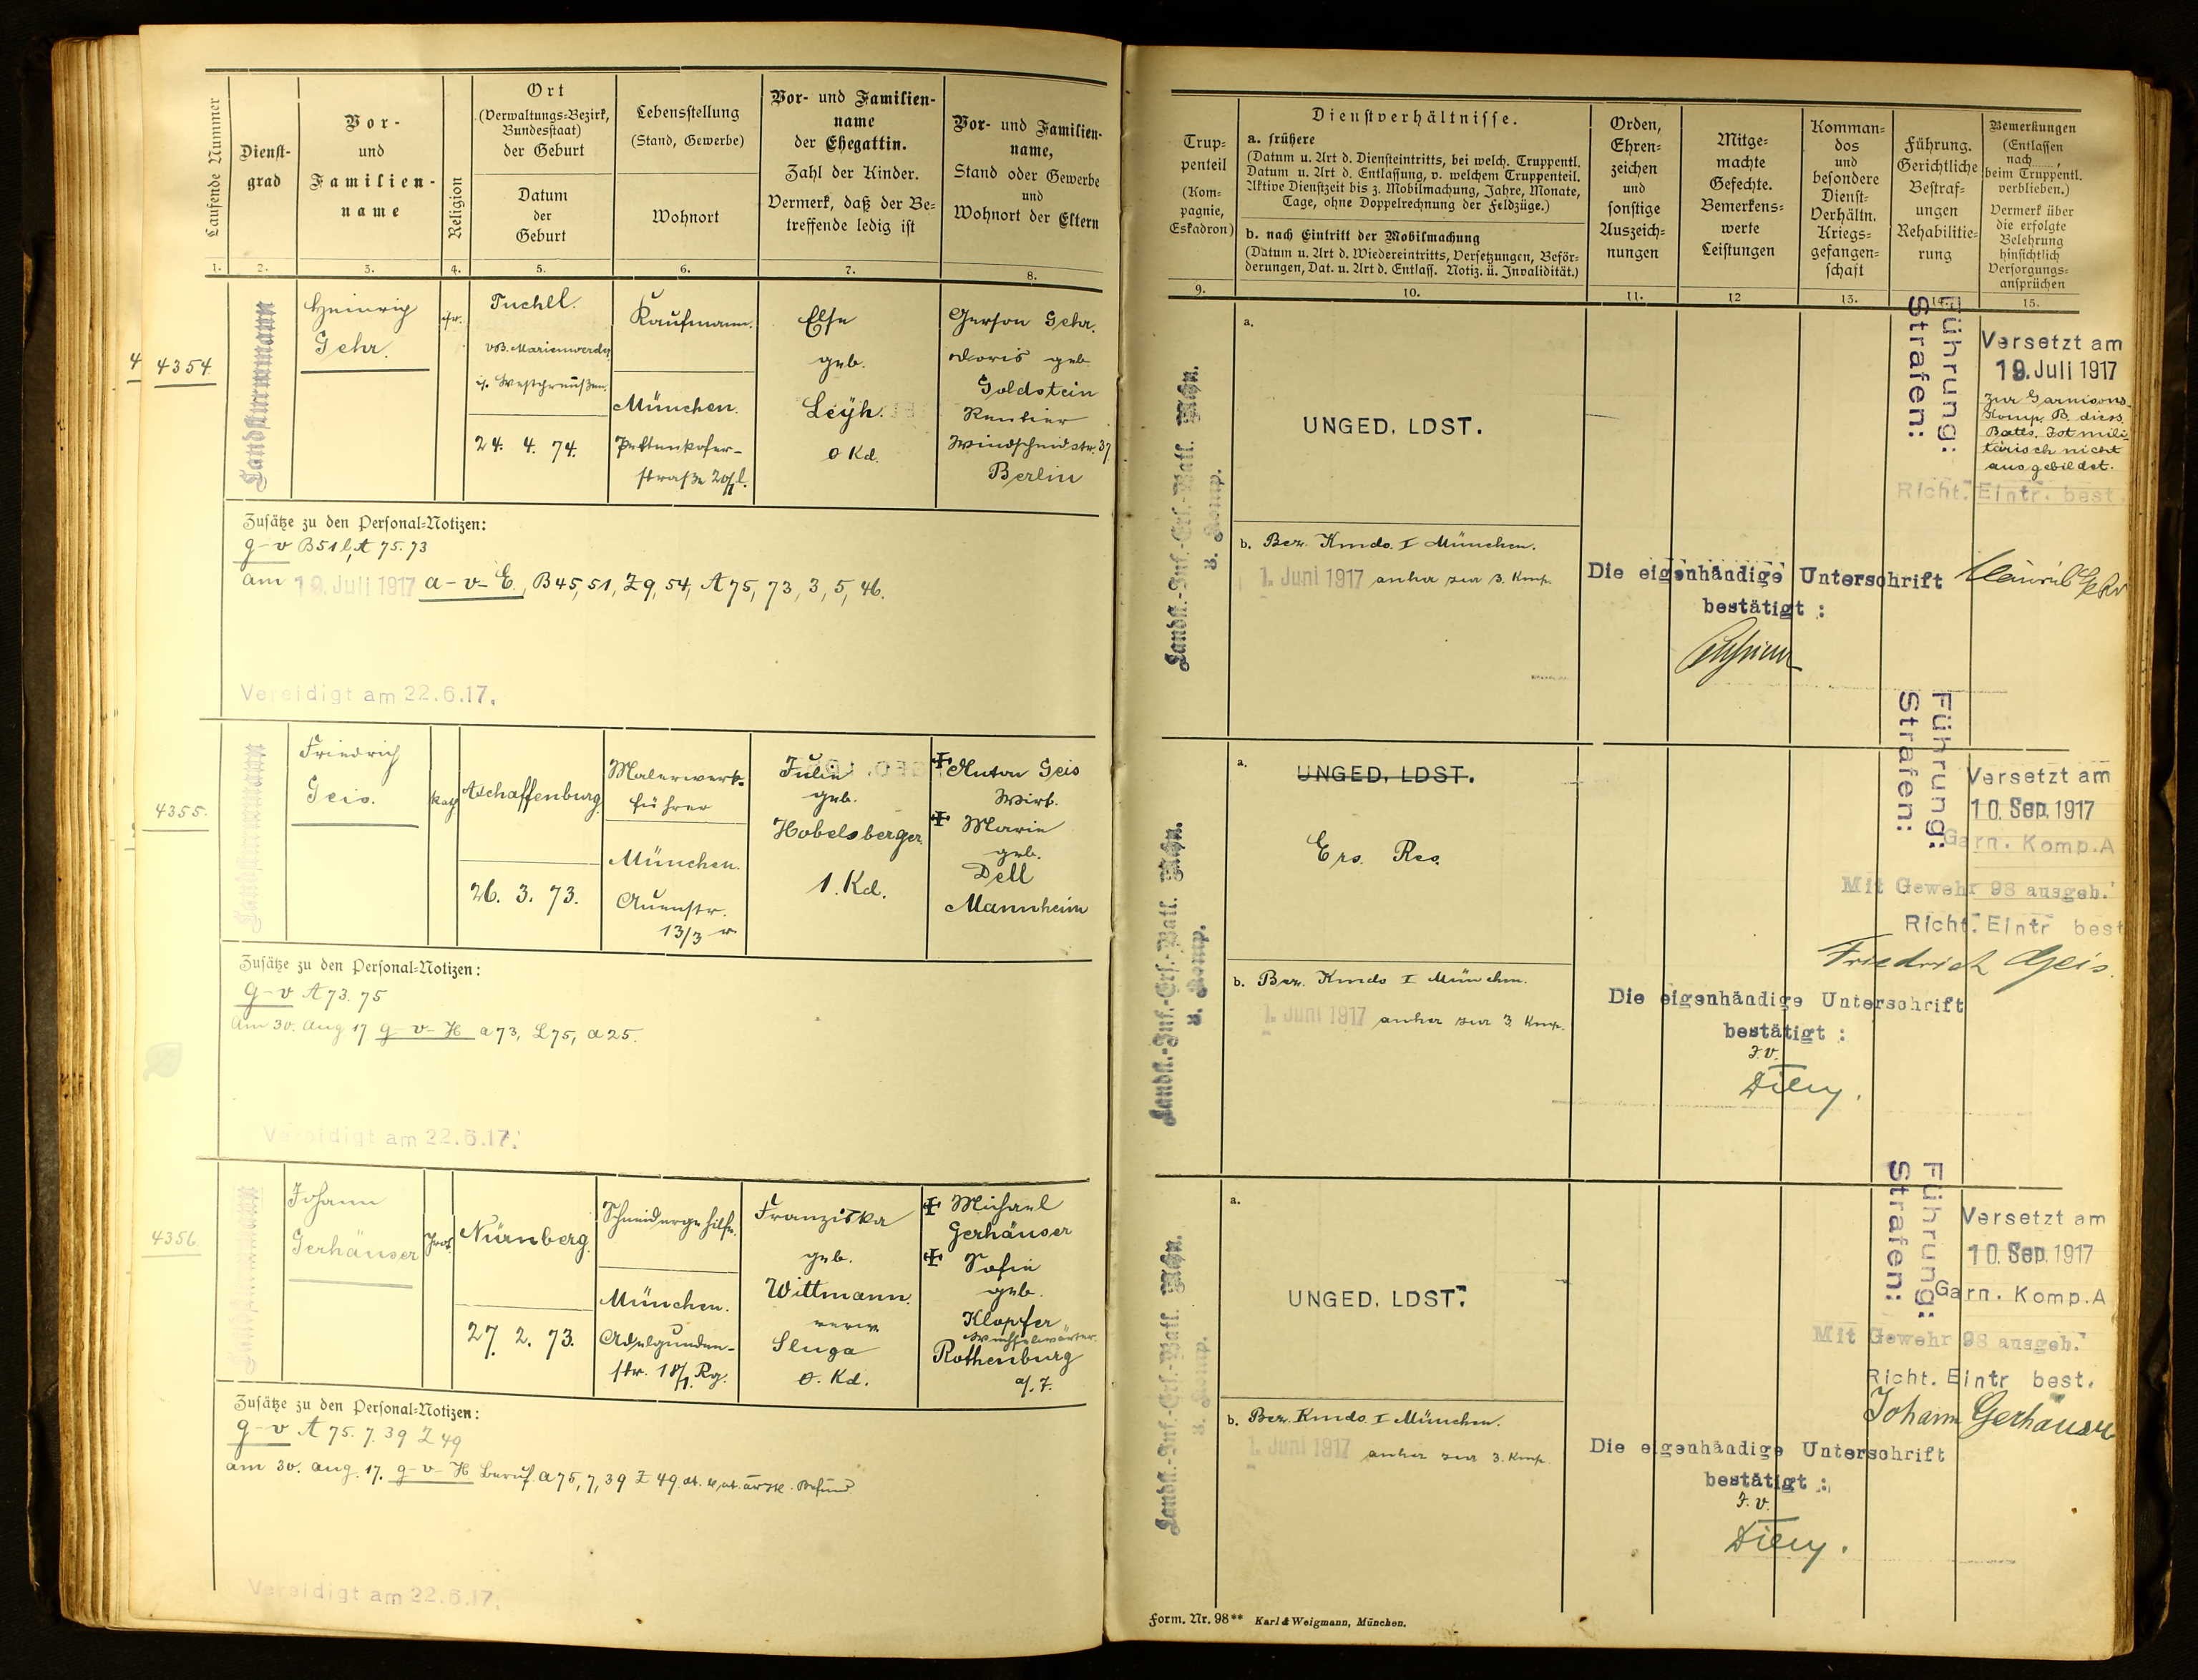 Laufende Nummer
1.
Dienst-
grad
2.
Vor-
und
Familien-
name
3.
Religion
4.
Ort
(Verwaltungs-Bezirk,
Bundesstaat)
der Geburt
Datum
der
Geburt
5.
Lebensstellung
(Stand, Gewerbe)
Wohnort
6.
Vor- und Familien-
name
der Ehegattin.
Zahl der Kinder.
Vermerk, daß der Be-
treffende ledig ist
7.
Vor- und Familien-
name,
Stand oder Gewerbe
und
Wohnort der Eltern
8.
4
4354
Landsturmmann
Heinrich
Gehr.
isr.
Tuchel.
vB. Marienwerder
i. Westpreußen.
24. 4. 74.
Kaufmann.
München.
Pettenkofer-
straße
Else
geb.
Leyh.
0 Kd.
Gerson Gehr.
Doris geb
Goldstein
Rentier
Windscheidstr. 37
Berlin
Zusätze zu den Personal-Notizen:
g-v B51 l, A 75. 73
am 19. Juli 1917 a-v-E, B45, 51, Z9, 54, A75, 73, 3, 5, 46.
Vereidigt am 22.6.17.
4355.
Landsturmmann
Friedrich
Geis.
kath
Aschaffenburg
26. 3. 73.
Malerwerk-
führer
München.
Auenstr.
13/3 r
Julie
geb.
Hobelsberger
1. Kd.
✠ Anton Geis
Wirt.
✠ Marie
geb.
Dell
Mannheim
Zusätze zu den Personal-Notizen:
g-v A 73. 75
am 30. Aug 17 g-v-H a 73, L 75, a 25.
Vereidigt am 22.6.17.
4356.
Landsturmmann
Johann
Gerhäuser
Prot.
Nürnberg.
27. 2. 73.
Schneidergehilfe.
München.
Adelgunden-
str. 18/1. Rg.
Franziska
geb.
Wittmann.
verw.
Sluga
0. Kd.
✠ Michael
Gerhäuser
✠ Sofie
geb.
Klopfer
Weichselwärter.
Rothenburg
a/. T.
Zusätze zu den Personal-Notizen:
g-v A 75. 7. 39 Z 49
am 30. Aug. 17. g-v-H Beruf a 75, 7, 39 Z 49. Befund
Vereidigt am 22.6.17.
Trup-
penteil
(Kom-
pagnie,
Eskadron)
9.
Dienstverhältnisse.
a. frühere
(Datum u. Art d. Diensteintritts, bei welch. Truppentl.
Datum u. Art d. Entlassung, v. welchem Truppenteil.
Aktive Dienstzeit bis z. Mobilmachung, Jahre, Monate,
Tage, ohne Doppelrechnung der Feldzüge.)
b. nach Eintritt der Mobilmachung
(Datum u. Art d. Wiedereintritts, Versetzungen, Beför-
derungen, Dat. u. Art d. Entlass. Notiz. ü. Invalidität.)
10.
Orden,
Ehren-
zeichen
und
sonstige
Auszeich-
nungen
11.
Mitge-
machte
Gefechte.
Bemerkens-
werte
Leistungen
12
Komman-
dos
und
besondere
Dienst-
Verhältn.
Kriegs-
gefangen-
schaft
13.
Führung.
Gerichtliche
Bestraf-
ungen
Rehabilitie-
rung
14.
Bemerkungen
(Entlassen
nach ......,
beim Truppentl.
verblieben.)
Vermerk über
die erfolgte
Belehrung
hinsichtlich
Versorgungs-
ansprüchen
15.
Landst.-Inf.-Ers.-Batl. Mchn.
3. Komp.
a.
UNGED. LDST.
Führung:
Strafen:
Versetzt am
19. Juli 1917
zur Garnisons-
Komp. B dies
Batls. Ist mili-
tärisch nicht
ausgebildet.
Richt. Eintr. best.
b. Bez. Kmdo. I München.
1. Juni 1917 anher zur 3. Komp.
Die eigenhändige Unterschrift
bestätigt :
Heinrich Gehr
Landst.-Inf.-Ers.-Batl. Mchn.
3. Komp.
a.
UNGED. LDST.
Ers. Res.
Führung:
Strafen:
Versetzt am
10. Sep. 1917
Garn. Komp. A
Mit Gewehr 98 ausgeb.
Richt. Eintr best
Friedrich Geis.
b. Bez. Kmdo I München.
1. Juni 1917 anher zur 3. Komp.
Die eigenhändige Unterschrift
bestätigt :
I. V.
Landst.-Inf.-Ers.-Batl. Mchn.
3. Komp.
a.
UNGED. LDST.
Führung:
Strafen:
Versetzt am
10. Sep. 1917
Garn. Komp. A
Mit Gewehr 98 ausgeb.
Richt. Eintr best.
Johann Gerhäuser
b. Bez. Kmdo. I München.
1. Juni 1917 anher zur 3. Komp.
Die eigenhändige Unterschrift
bestätigt :
I. V.
Form. Nr. 98** Karl & Weigmann, München.